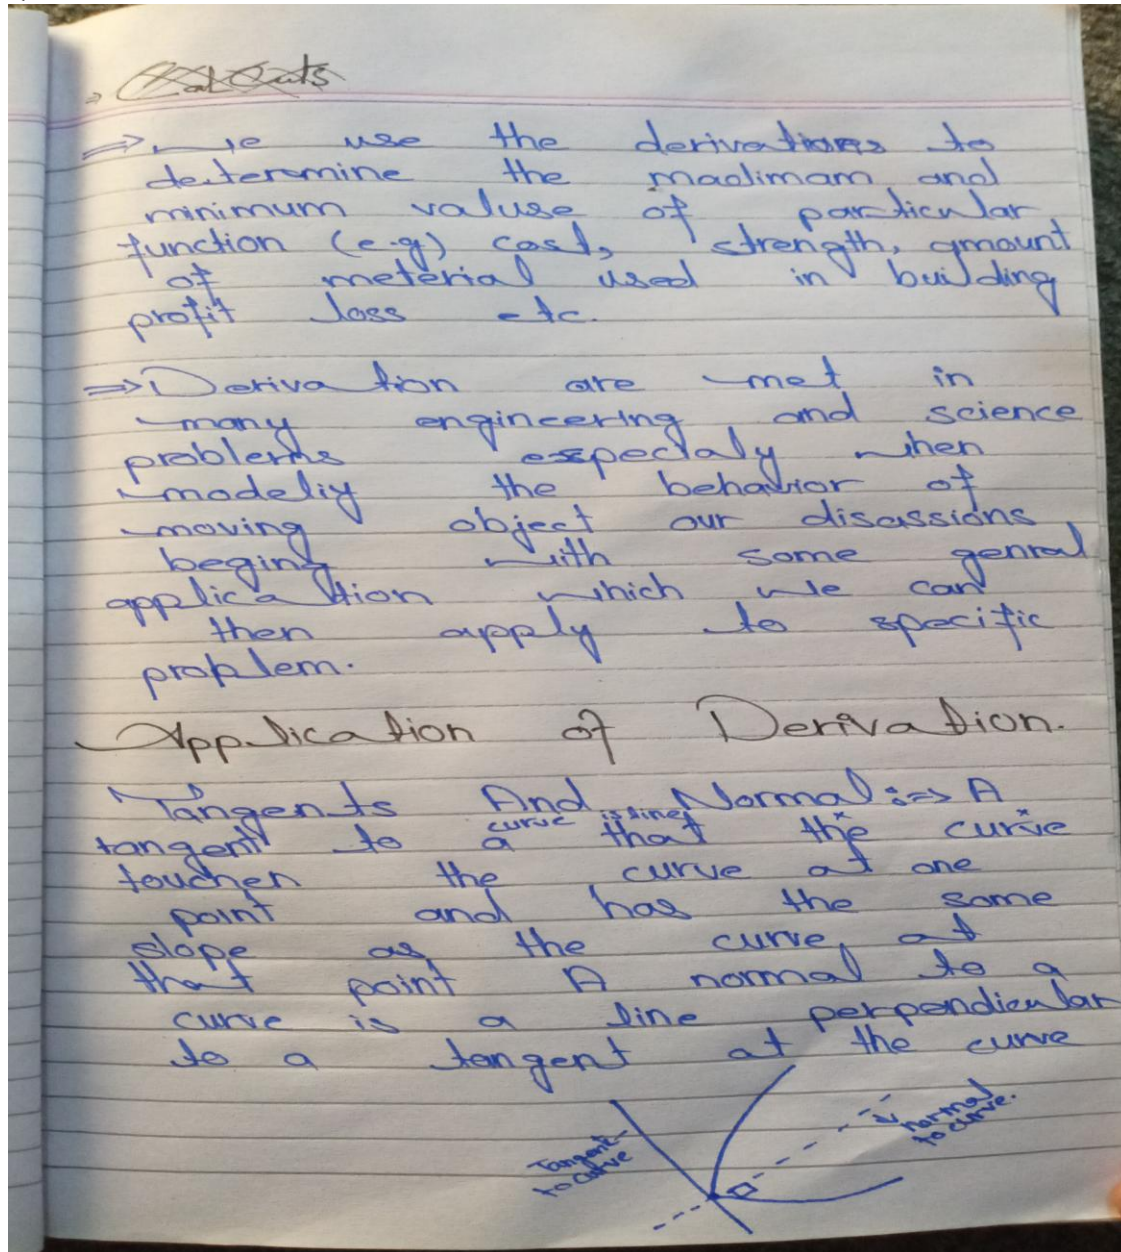 ⇒ we use the derivations to
determine the madimam and
minimum valuse of particular
function (e.g) cost, strength, amount
of meterial used in building
profit loss etc.
⇒ Derivation are met in
many engineering and science
problems especialy when
modeliy the behavior of
moving object our disassions
begins with some genral
application which we can
then apply to specific
problem.
Application of Derivation.
Tangents And Normal :=> A
tangent to a curve is line that the curve
touchen the curve at one
point and has the same
slope as the curve, at
that point A normal to a
curve is a line perpendicular
to a tangent at the curve
Tangent
to curve
normal
to curve.